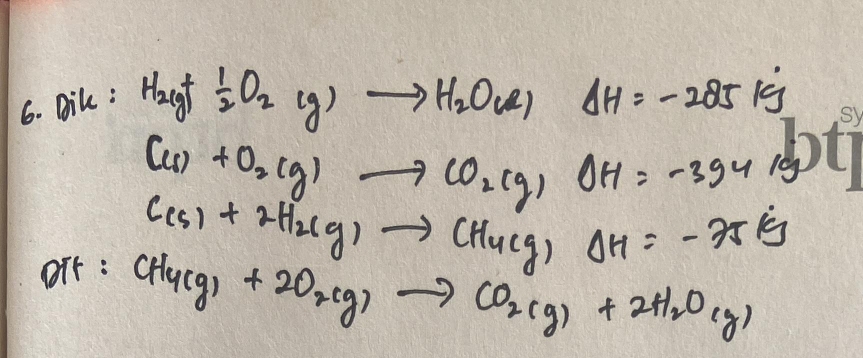 6. Dik : H₂(g) + ½O₂ (g) → H₂O(l) ΔH = -285 kj
C(s) + O₂ (g) → CO₂ (g) ΔH = -394 kj
C(s) + 2H₂(g) → CH₄(g) ΔH = -75 kj
Dit : CH₄(g) + 2O₂(g) → CO₂ (g) + 2H₂O (g)
sy
btp